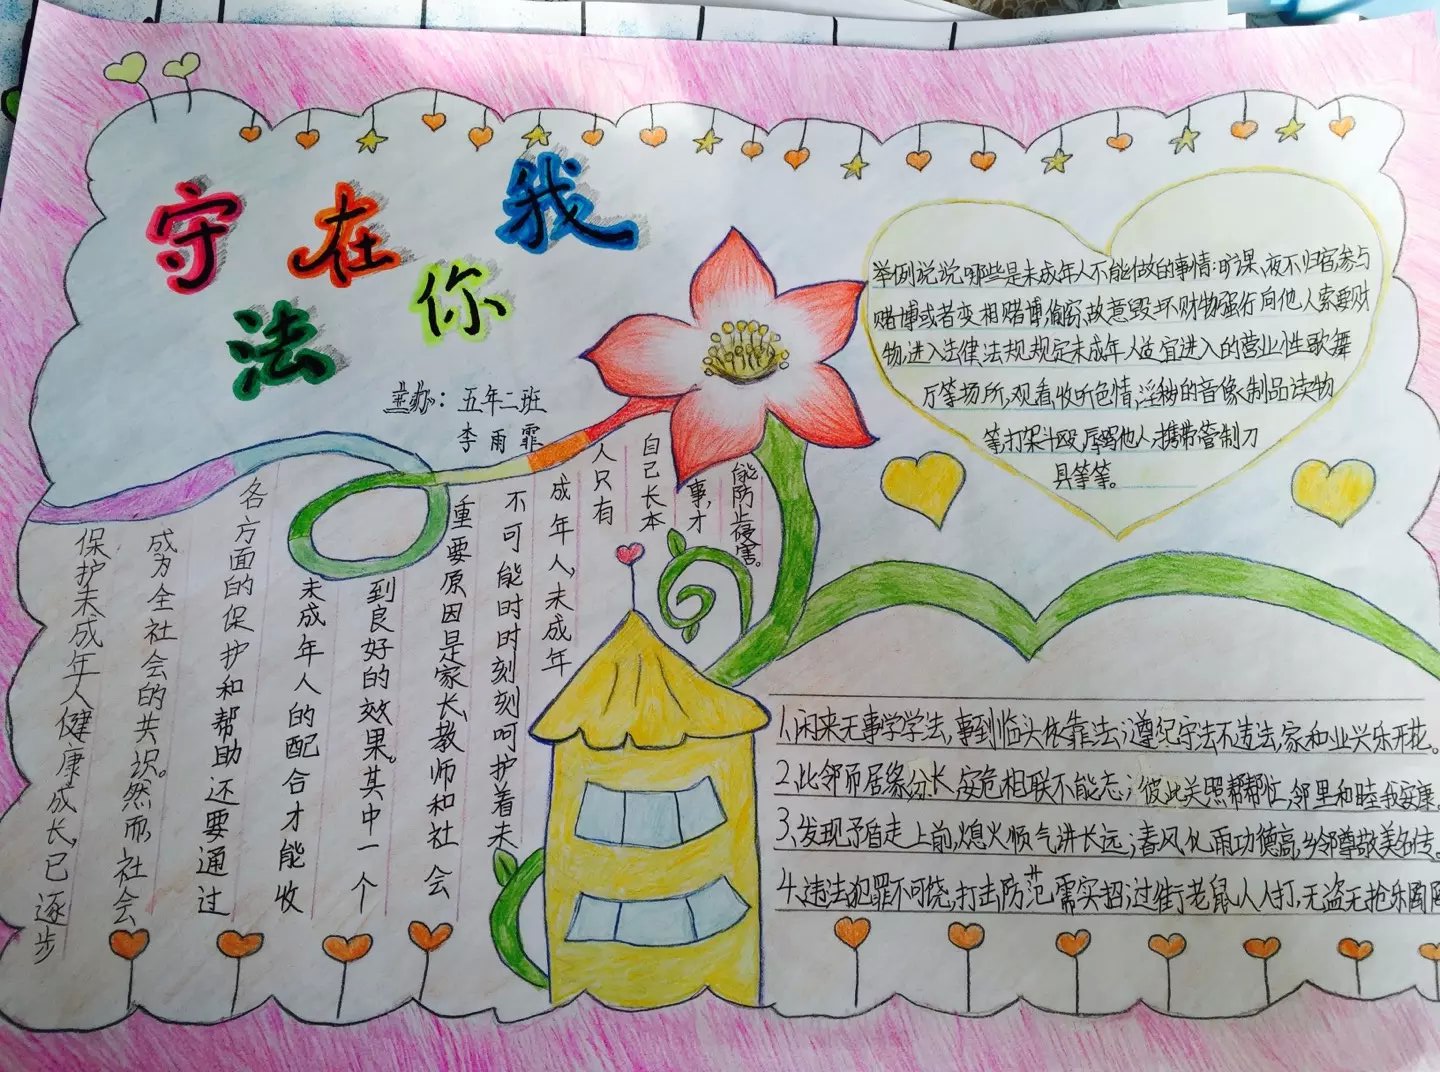 守法在你我
主办：五年二班
李雨霏
保护未成年人健康成长,已逐步
成为全社会的共识。然而,社会
各方面的保护和帮助还要通过
未成年人的配合才能收
到良好的效果。其中一个
重要原因是家长,教师和社会
不可能时时刻刻呵护着未
成年人,未成年
人只有
自己长本
事,才
能防止侵害。
举例说说哪些是未成年人不能做的事情:旷课、夜不归宿,参与
赌博或者变相赌博,偷窃,故意毁坏财物强行向他人索要财
物,进入法律,法规规定未成年人适宜进入的营业性歌舞
厅等场所,观看,收听色情,淫秽的音像制品读物
等打架斗殴,辱骂他人,携带管制刀
具等等。
1.闲来无事学学法,事到临头依靠法;遵纪守法不违法,家和业兴乐开花。
2.比邻而居缘分长,安危相联不能忘;彼此关照帮帮忙,邻里和睦我安康
3.发现矛盾走上前,熄火顺气讲长远;春风化雨功德高,乡邻尊敬美名传。
4.违法犯罪不可饶,打击防范需实招;过街老鼠人人打,无盗无抢乐陶